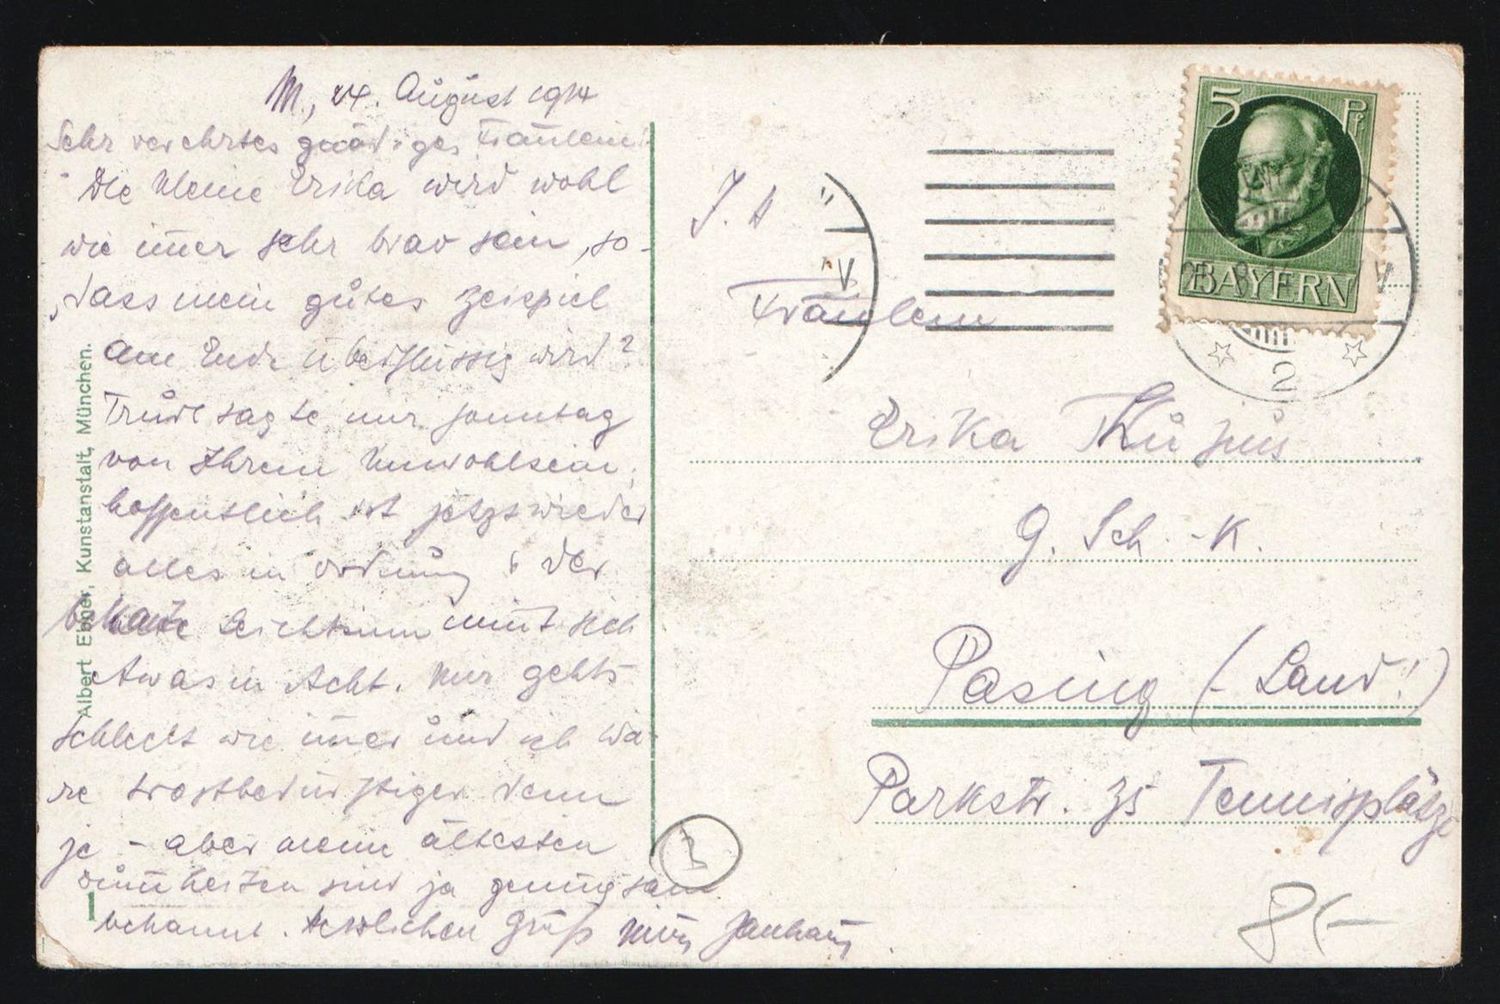 M, 24. August 1914
Sehr verehrtes gnädiges Fräulein!
Die kleine Erika wird wohl
wie imer sehr brav sein, so-
dass mein gutes Beispiel
am Ende überflüssig wird?
Trudl sagte mir Sonntag
von Ihrem Unwohlsein;
hoffentlich ist jetzt wieder
alles in Ordnung & der
bekannte Leichtsinn nimt sich
etwas in Acht. Mir gehts
schlecht wie imer und ich wä-
re trostbedürftiger denn
je - aber meine ältesten
Dumheiten sind ja genugsam
bekannt. Herzlichen Gruß
Albert Ebner, Kunstanstalt, München.
Fräulein
Erika
G. Sch. -K.
Pasing (- Land!)
Parkstr. 35 Tennisplätze
5 Pf
BAYERN
2
8/-